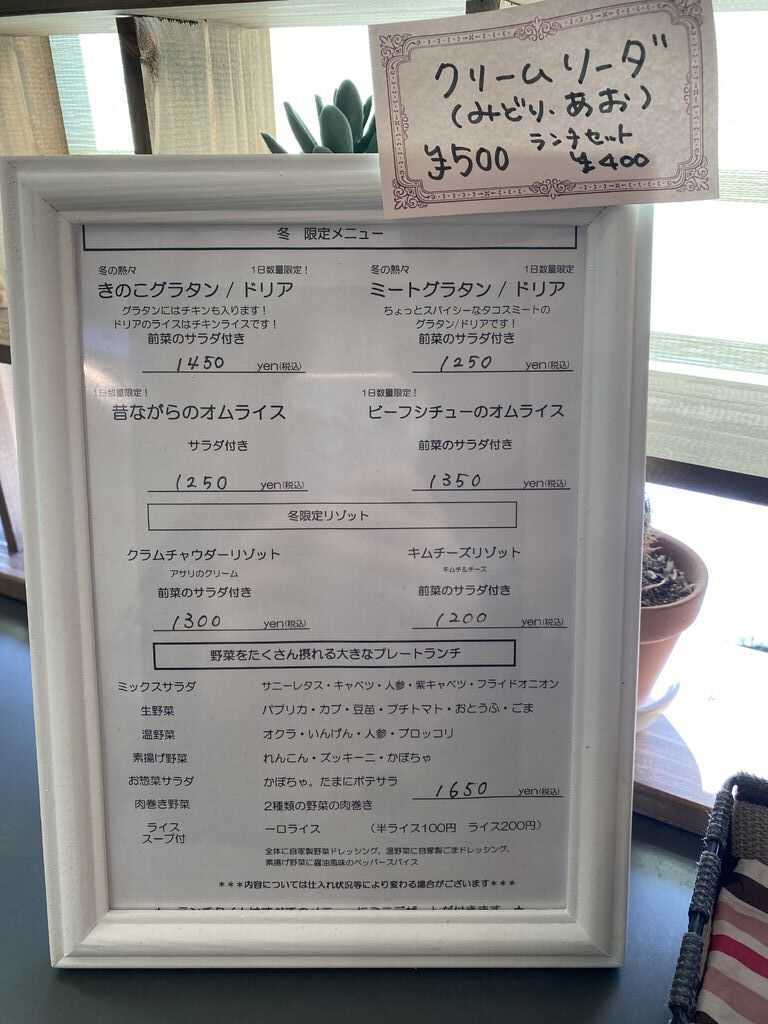 クリームソーダ
(みどり、あお)
ランチセット
¥500 ¥400
冬 限定メニュー
冬の熱々 1日数量限定!
きのこグラタン / ドリア
グラタンにはチキンも入ります!
ドリアのライスはチキンライスです!
前菜のサラダ付き
1450 yen(税込)
冬の熱々 1日数量限定!
ミートグラタン / ドリア
ちょっとスパイシーなタコスミートの
グラタン/ドリアです!
前菜のサラダ付き
1250 yen(税込)
1日数量限定!
昔ながらのオムライス
サラダ付き
1250 yen(税込)
1日数量限定!
ビーフシチューのオムライス
前菜のサラダ付き
1350 yen(税込)
冬限定リゾット
クラムチャウダーリゾット
アサリのクリーム
前菜のサラダ付き
1300 yen(税込)
キムチーズリゾット
キムチ&チーズ
前菜のサラダ付き
1200 yen(税込)
野菜をたくさん摂れる大きなプレートランチ
ミックスサラダ サニーレタス・キャベツ・人参・紫キャベツ・フライドオニオン
生野菜 パプリカ・カブ・豆苗・プチトマト・おとうふ・ごま
温野菜 オクラ・いんげん・人参・ブロッコリ
素揚げ野菜 れんこん・ズッキーニ・かぼちゃ
お惣菜サラダ かぼちゃ。たまにポテサラ
1650 yen(税込)
肉巻き野菜 2種類の野菜の肉巻き
ライス 一口ライス (半ライス100円 ライス200円)
スープ付
全体に自家製野菜ドレッシング、温野菜に自家製ごまドレッシング、
素揚げ野菜に醤油風味のペッパースパイス
***内容については仕入れ状況等により変わる場合がございます***